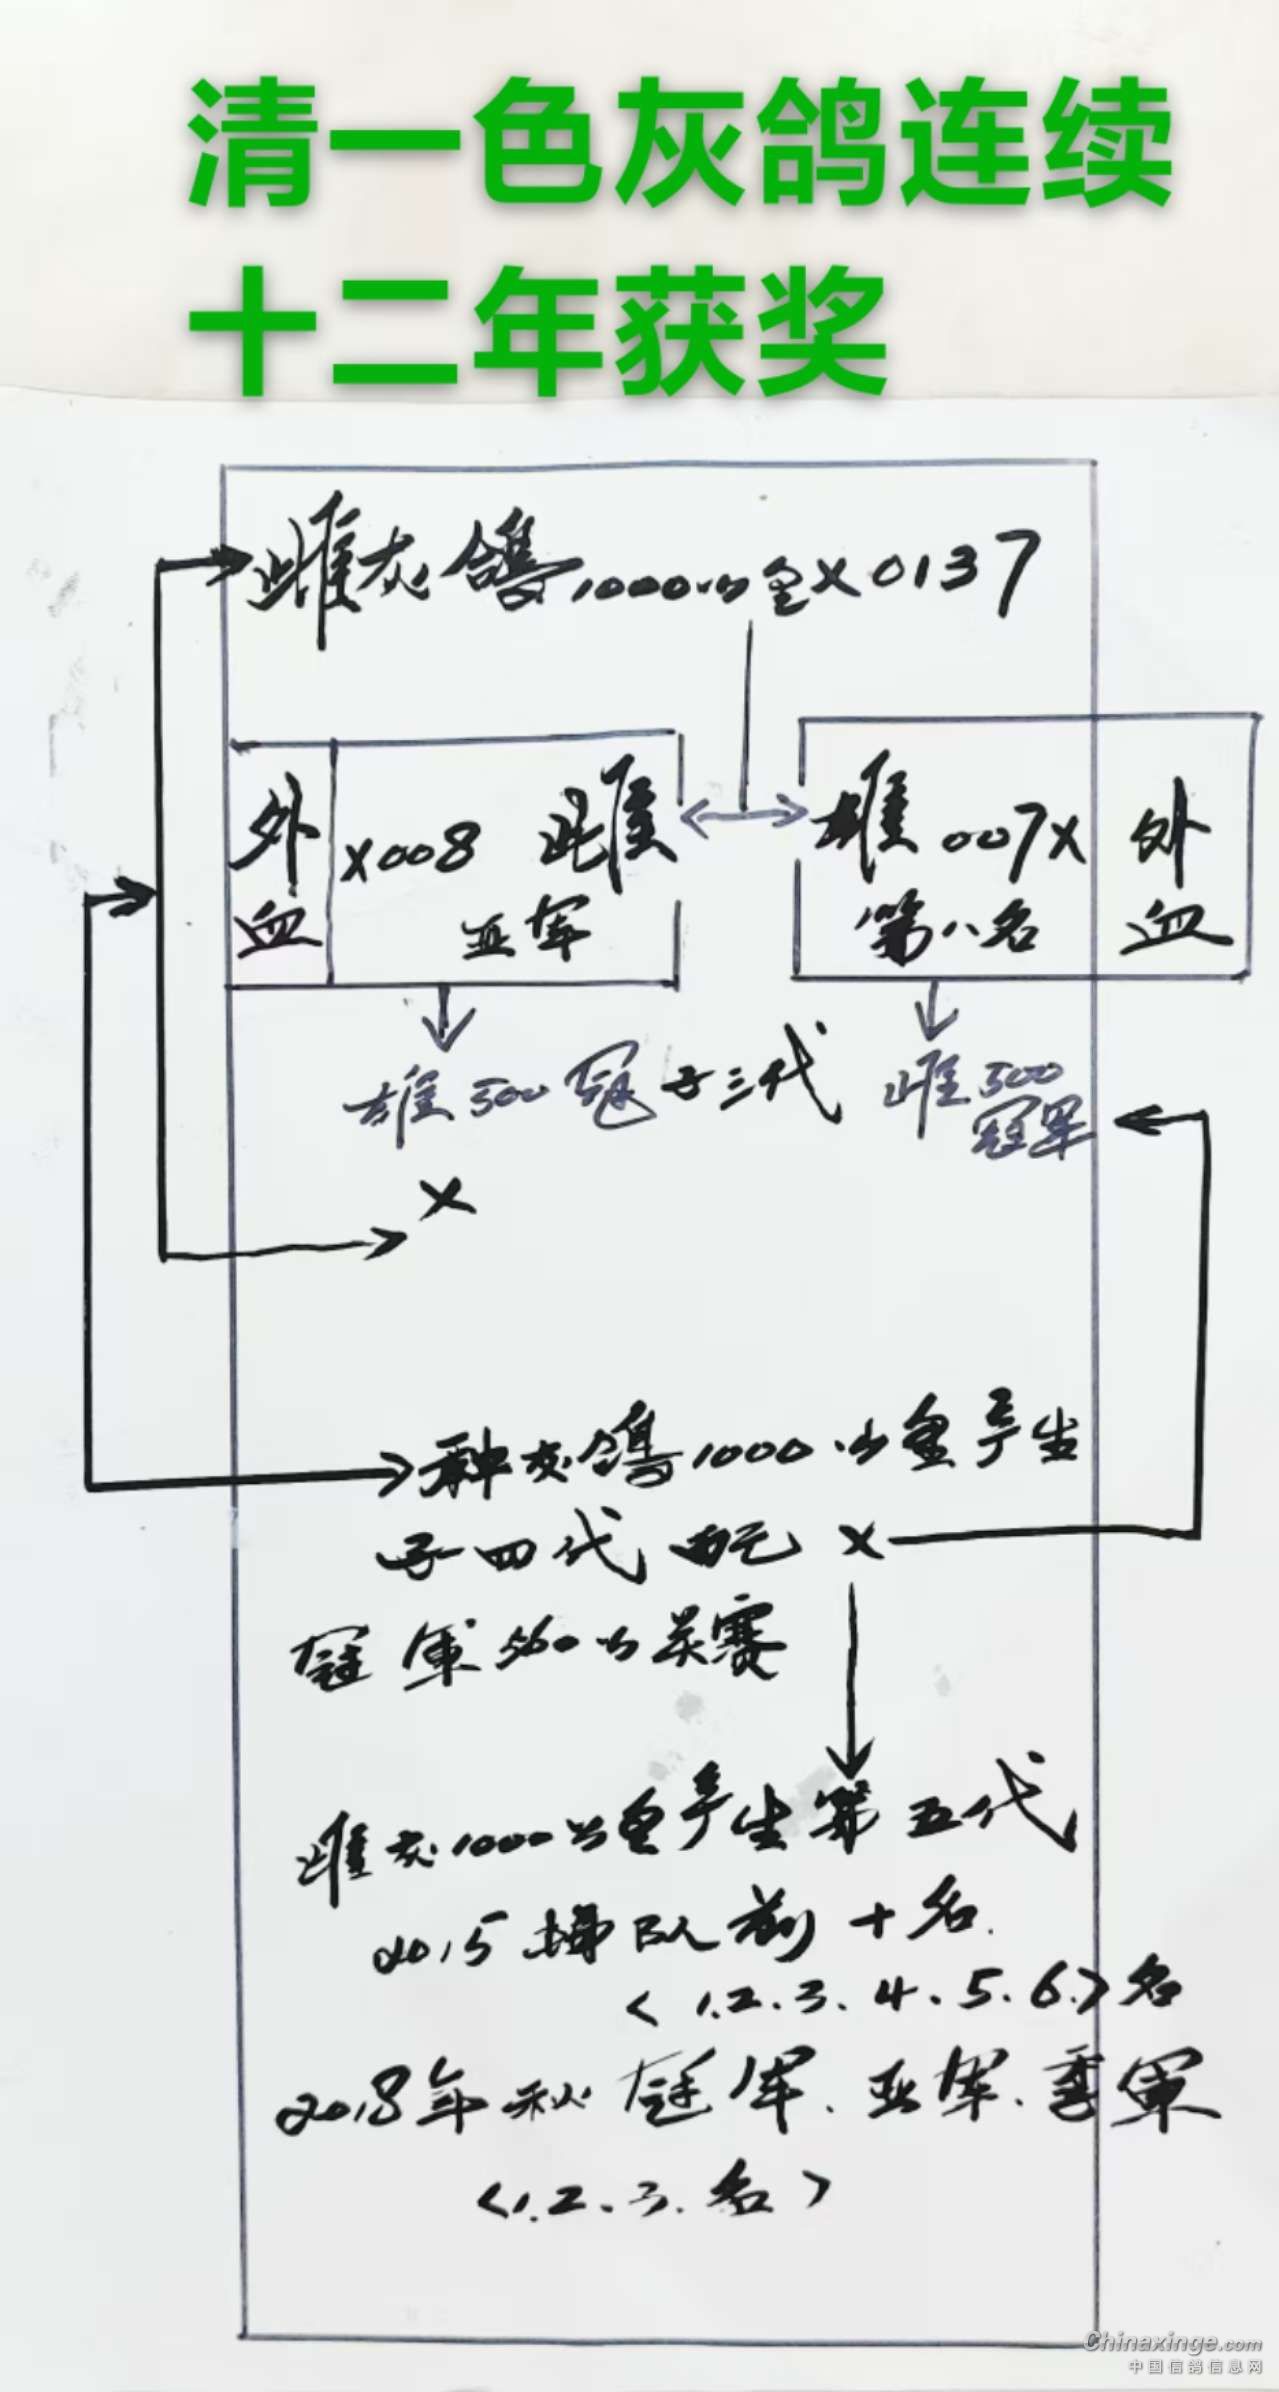 清一色灰鸽连续
十二年获奖
雌灰鸽1000公里X0137
外血
X008 雌
亚军
雄 007X
第八名
外血
雄500冠 子三代
雌500
冠军
X
种灰鸽1000公里产生
子四代 配 X
冠軍500公里赛
雌灰1000公里产生第五代
2015梯队前十名.
<1.2.3.4.5.6.>名
2018年秋冠军.亚军.季軍
<1.2.3.名>
Chinaxinge.com
中国信鸽信息网